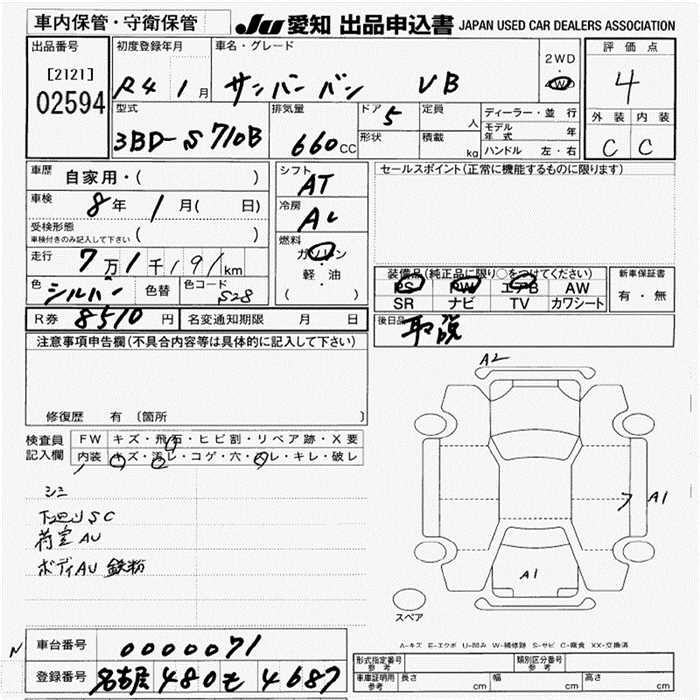 車内保管・守衛保管
JU 愛知 出品申込書 JAPAN USED CAR DEALERS ASSOCIATION
出品番号
[2121]
02594
初度登録年月
R4 1月
車名・グレード
サンバーバン VB
2WD
・
4WD
評価点
4
外装 内装
C C
型式
3BD-S710B
排気量
660CC
ドア 5
形状
定員 人
積載 kg
ディーラー・並行
モデル年式 年
ハンドル 左・右
車歴 自家用・( )
車検 8年 1月( 日)
受検形態
車検付きのみ記入して下さい ( )
走行 7万1千191km
色 シルバー 色替 色コード S28
シフト
AT
冷房
AC
燃料
ガソリン
・
軽・油
( )
セールスポイント(正常に機能するものに限ります)
装備品(純正品に限り○をつけてください)
PS PW エアB AW
SR ナビ TV カワシート
新車保証書
有・無
R券 8510円 名変通知期限 月 日
後日品 取説
注意事項申告欄(不具合内容等は具体的に記入して下さい)
修復歴 有 〔箇所 〕
検査員記入欄
FW キズ・飛石・ヒビ割・リペア跡・X要
内装 キズ・汚レ・コゲ・穴・スレ・キレ・破レ
シミ
下廻りSC
荷室AU
ボディAU 鉄粉
A2
A1
A1
スペア
A-キズ E-エクボ U-凹み W-補修跡 S-サビ C-腐食 XX-交換済
N
車台番号 0000071
登録番号 名古屋 480 モ 4687
形式指定番号 参考
類別区分番号 参考
車庫証明用 参考 長さ cm 幅 cm 高さ cm